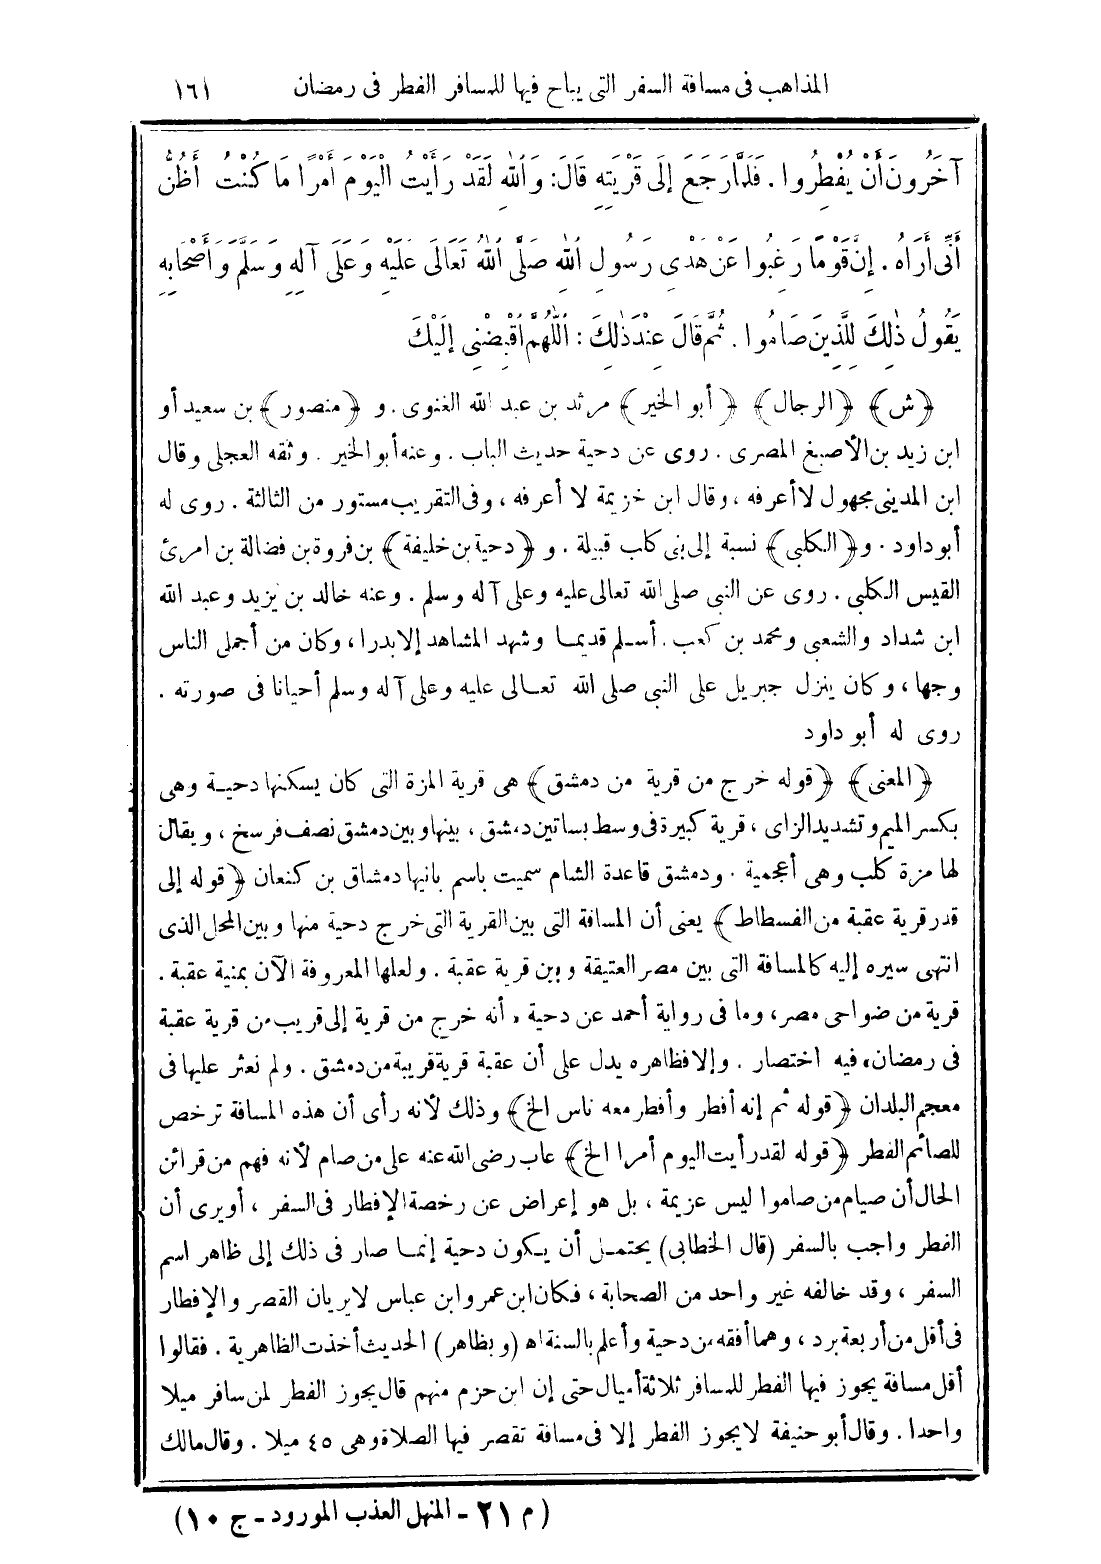 المذاهب فى مسافة السفر التى يباح فيها للمسافر الفطر فى رمضان ١٦١
آخَرُونَ أَنْ يُفْطِرُوا . فَلَمَّا رَجَعَ إِلَى قَرْيَتِهِ قَالَ: وَاَللّٰهِ لَقَدْ رَأَيْتُ الْيَوْمَ أَمْرًا مَا كُنْتُ أَظُنُّ
أَنِّى أَرَاهُ . إِنَّ قَوْمًا رَغِبُوا عَنْ هَدْىِ رَسُولِ اَللّٰهِ صَلَّى اَللّٰهُ تَعَالَى عَلَيْهِ وَعَلَى آلِهِ وَسَلَّمَ وَأَصْحَابِهِ
يَقُولُ ذٰلِكَ لِلَّذِينَ صَامُوا . ثُمَّ قَالَ عِنْدَ ذٰلِكَ : اَللّٰهُمَّ اَقْبِضْنِى إِلَيْكَ
﴿ش﴾ ﴿الرجال﴾ ﴿أبو الخير﴾ مرثد بن عبد الله الغنوى . و ﴿منصور﴾ بن سعيد أو
ابن زيد بن الأصبغ المصرى . روى عن دحية حديث الباب . وعنه أبو الخير . وثقه العجلى وقال
ابن المدينى مجهول لا أعرفه ، وقال ابن خزيمة لا أعرفه ، وفى التقريب مستور من الثالثة . روى له
أبو داود . و ﴿الكلبى﴾ نسبة إلى بنى كلب قبيلة . و ﴿دحية بن خليفة﴾ بن فروة بن فضالة بن امرئ
القيس الكلبى . روى عن النبى صلى الله تعالى عليه وعلى آله وسلم . وعنه خالد بن يزيد وعبد الله
ابن شداد والشعبى ومحمد بن كعب . أسلم قديما وشهد المشاهد إلا بدرا ، وكان من أجمل الناس
وجها ، وكان ينزل جبريل على النبى صلى الله تعالى عليه وعلى آله وسلم أحيانا فى صورته .
روى له أبو داود
﴿المعنى﴾ ﴿قوله خرج من قرية من دمشق﴾ هى قرية المزة التى كان يسكنها دحية وهى
بكسر الميم وتشديد الزاى ، قرية كبيرة فى وسط بساتين دمشق ، بينها وبين دمشق نصف فرسخ ، ويقال
لها مزة كلب وهى أعجمية . ودمشق قاعدة الشام سميت باسم بانيها دمشاق بن كنعان ﴿قوله إلى
قدر قرية عقبة من الفسطاط﴾ يعنى أن المسافة التى بين القرية التى خرج دحية منها وبين المحل الذى
انتهى سيره إليه كالمسافة التى بين مصر العتيقة وبين قرية عقبة . ولعلها المعروفة الآن بمنية عقبة .
قرية من ضواحى مصر، وما فى رواية أحمد عن دحية ، أنه خرج من قرية إلى قريب من قرية عقبة
فى رمضان، فيه اختصار . وإلا فظاهره يدل على أن عقبة قرية قريبة من دمشق . ولم نعثر عليها فى
معجم البلدان ﴿قوله ثم إنه أفطر وأفطر معه ناس الخ﴾ وذلك لأنه رأى أن هذه المسافة ترخص
للصائم الفطر ﴿قوله لقد رأيت اليوم أمرا الخ﴾ عاب رضى الله عنه على من صام لأنه فهم من قرائن
الحال أن صيام من صاموا ليس عزيمة ، بل هو إعراض عن رخصة الإفطار فى السفر ، أو يرى أن
الفطر واجب بالسفر (قال الخطابى) يحتمل أن يكون دحية إنما صار فى ذلك إلى ظاهر اسم
السفر ، وقد خالفه غير واحد من الصحابة ، فكان ابن عمر وابن عباس لا يريان القصر والإفطار
فى أقل من أربعة برد ، وهما أفقه من دحية وأعلم بالسنة اه (وبظاهر) الحديث أخذت الظاهرية . فقالوا
أقل مسافة يجوز فيها الفطر للمسافر ثلاثة أميال حتى إن ابن حزم منهم قال يجوز الفطر لمن سافر ميلا
واحدا . وقال أبو حنيفة لا يجوز الفطر إلا فى مسافة تقصر فيها الصلاة وهى ٤٥ ميلا . وقال مالك
(م ٢١ - المنهل العذب المورود - ج ١٠)